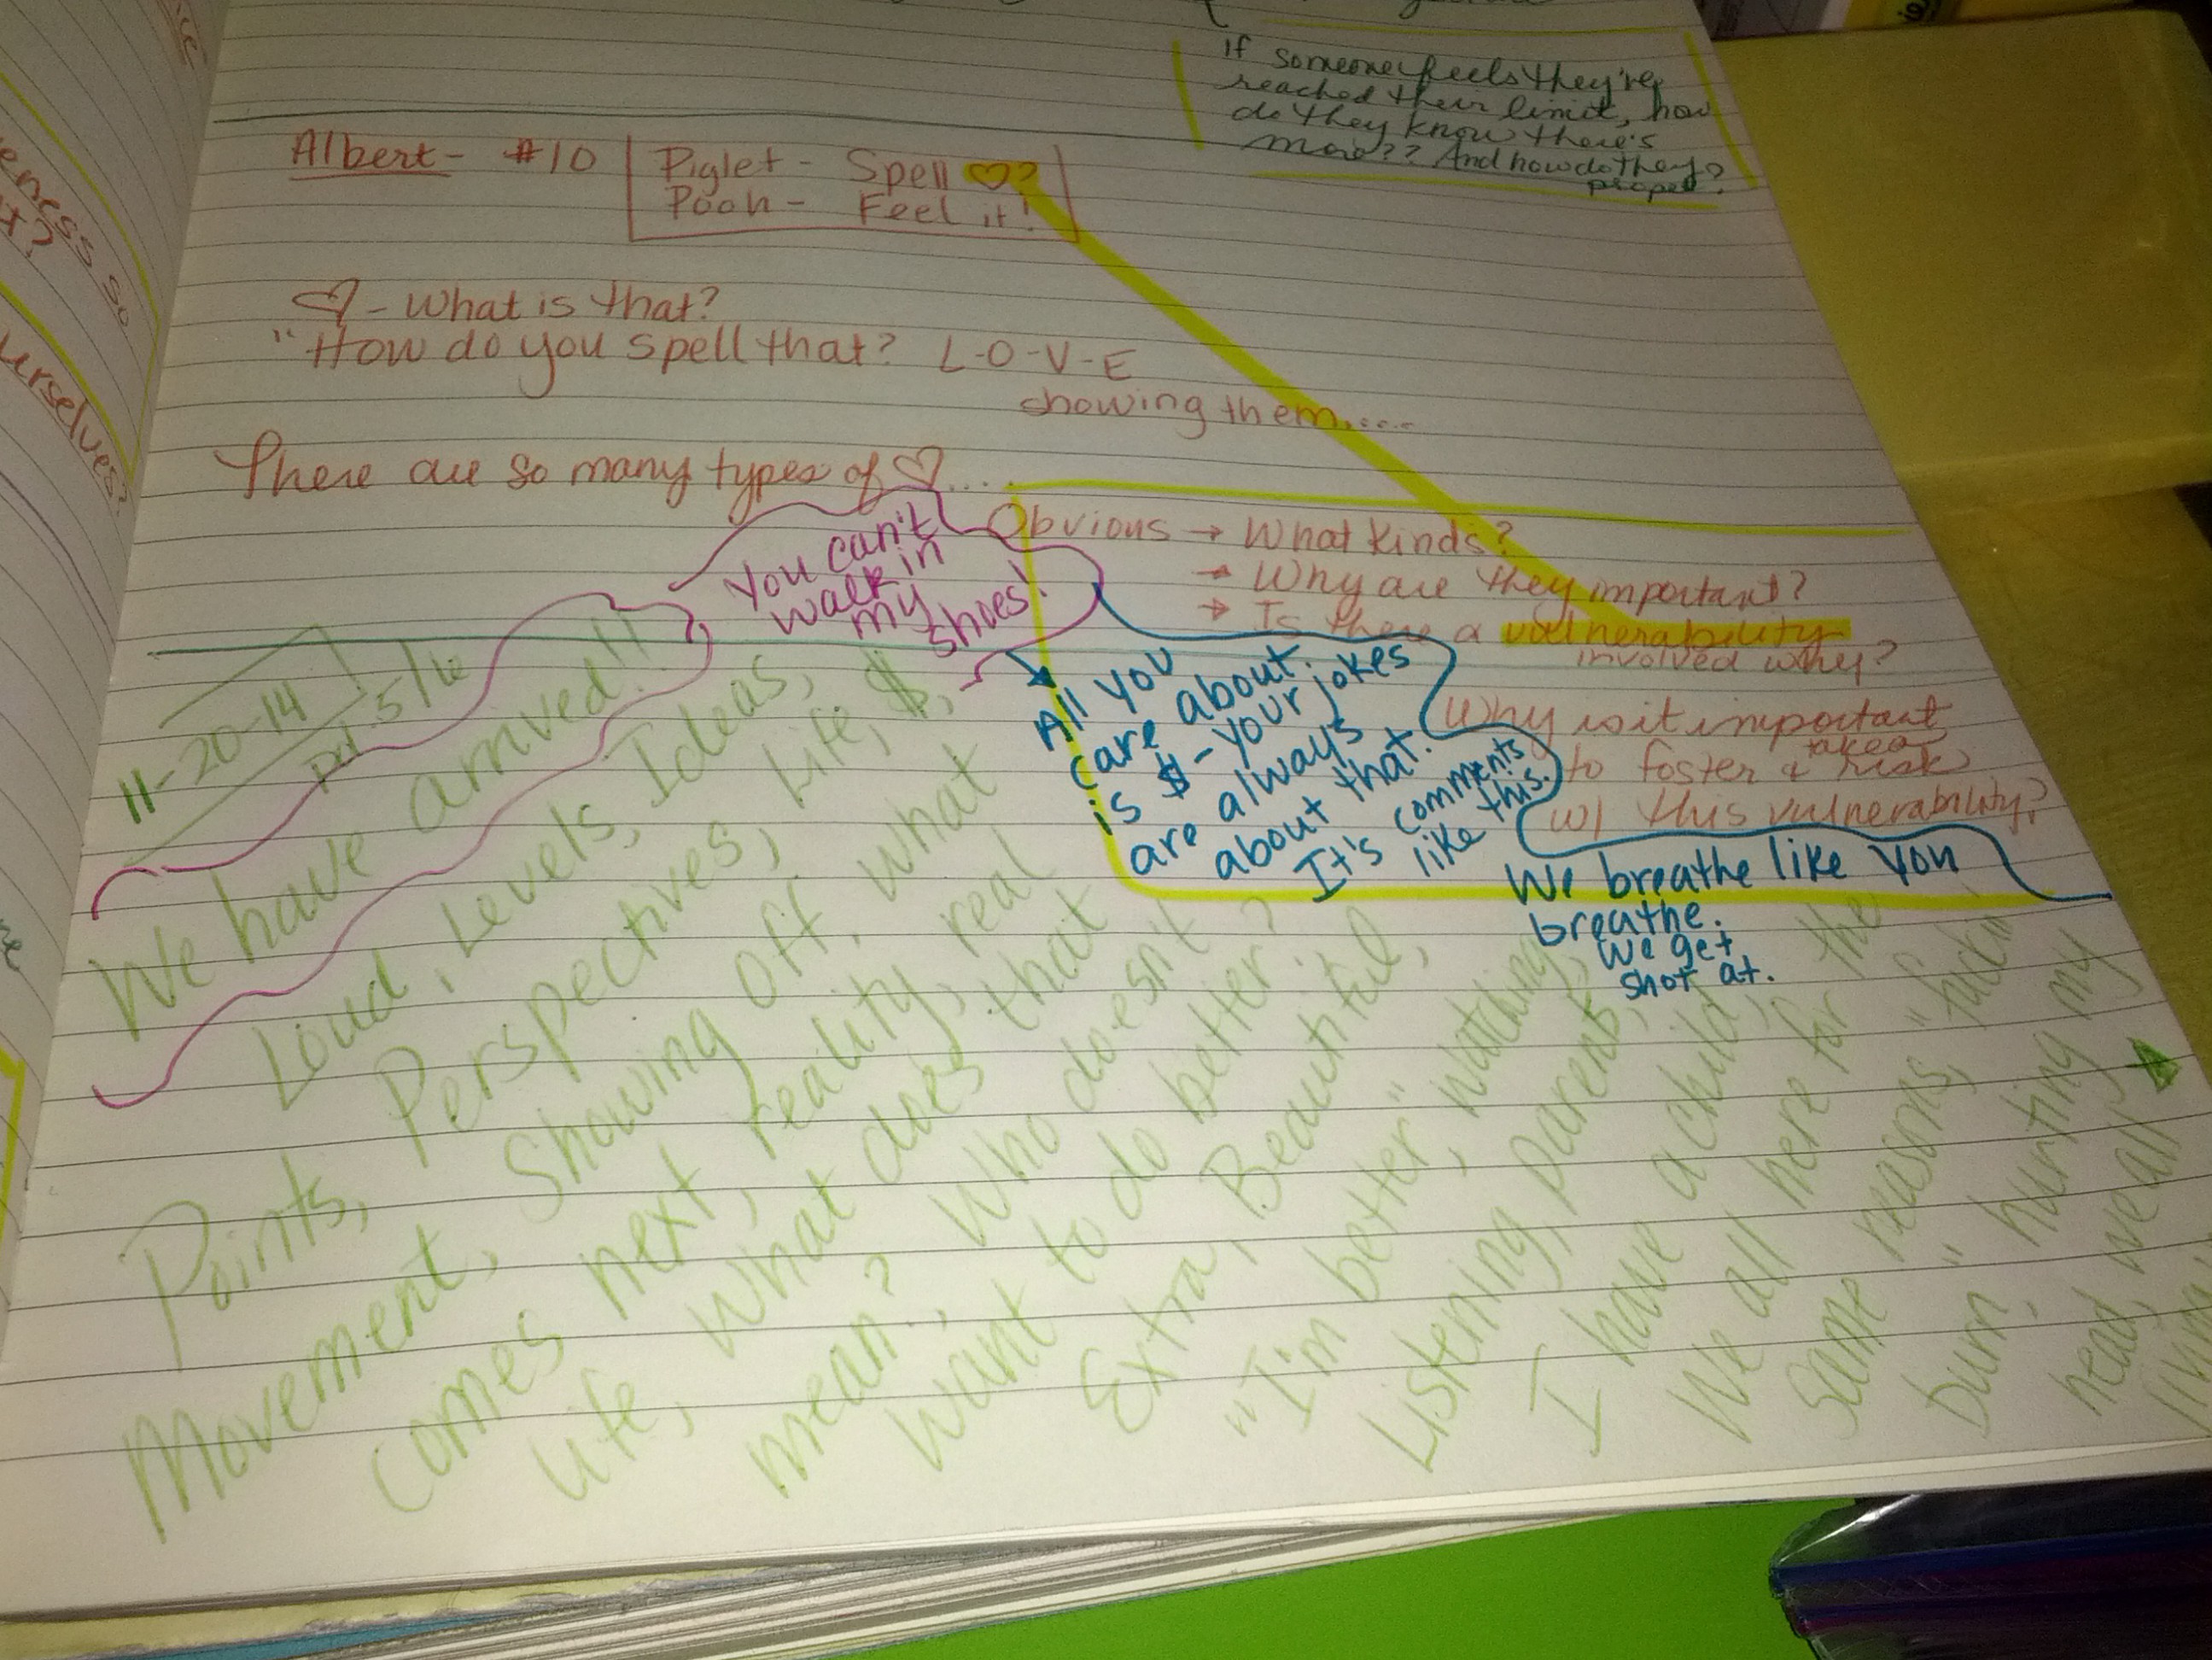 If someone feels they're
reached their limit, how
do they know there's
more?? And how do they
propel?
Albert- #10
Piglet - Spell ♡?
Pooh - Feel it!
♡ - What is that?
"How do you spell that? L-O-V-E
showing them.....
There are so many types of ♡....
Obvious → What kinds?
→ Why are they important?
→ Is there a vulnerability
involved why?
Why is it important
to foster & take a risk
w/ this vulnerability?
You can't
walk in
my
shoes!
All you
care about
is $ - your jokes
are always
about that.
It's comments
like this.
We breathe like you
breathe.
We get
shot at.
11-20-14
pd. 5/6
We have arrived!!
Loud, Levels, Ideas,
Points, Perspectives, Life, $,
Movement, Showing off, what
comes next, reality, real
life, what does that
mean?, Who doesn't
want to do better?
Extra, Beautiful,
"I'm better", watching,
Listening, parents,
I have a child,
We all here for the
same reasons, "fuckin
burn", hurting my
head, we all
urselves?
eness so